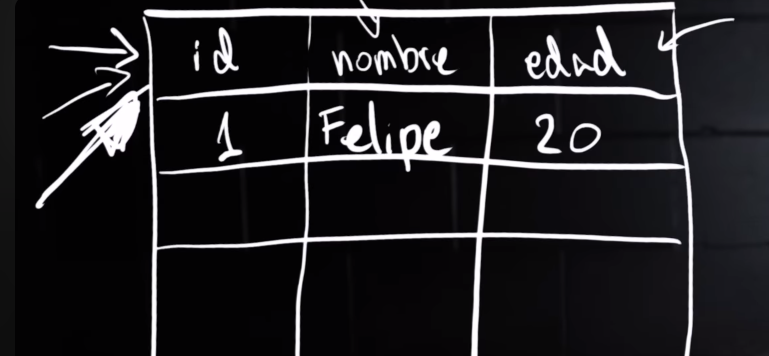 id nombre edad
1 Felipe 20